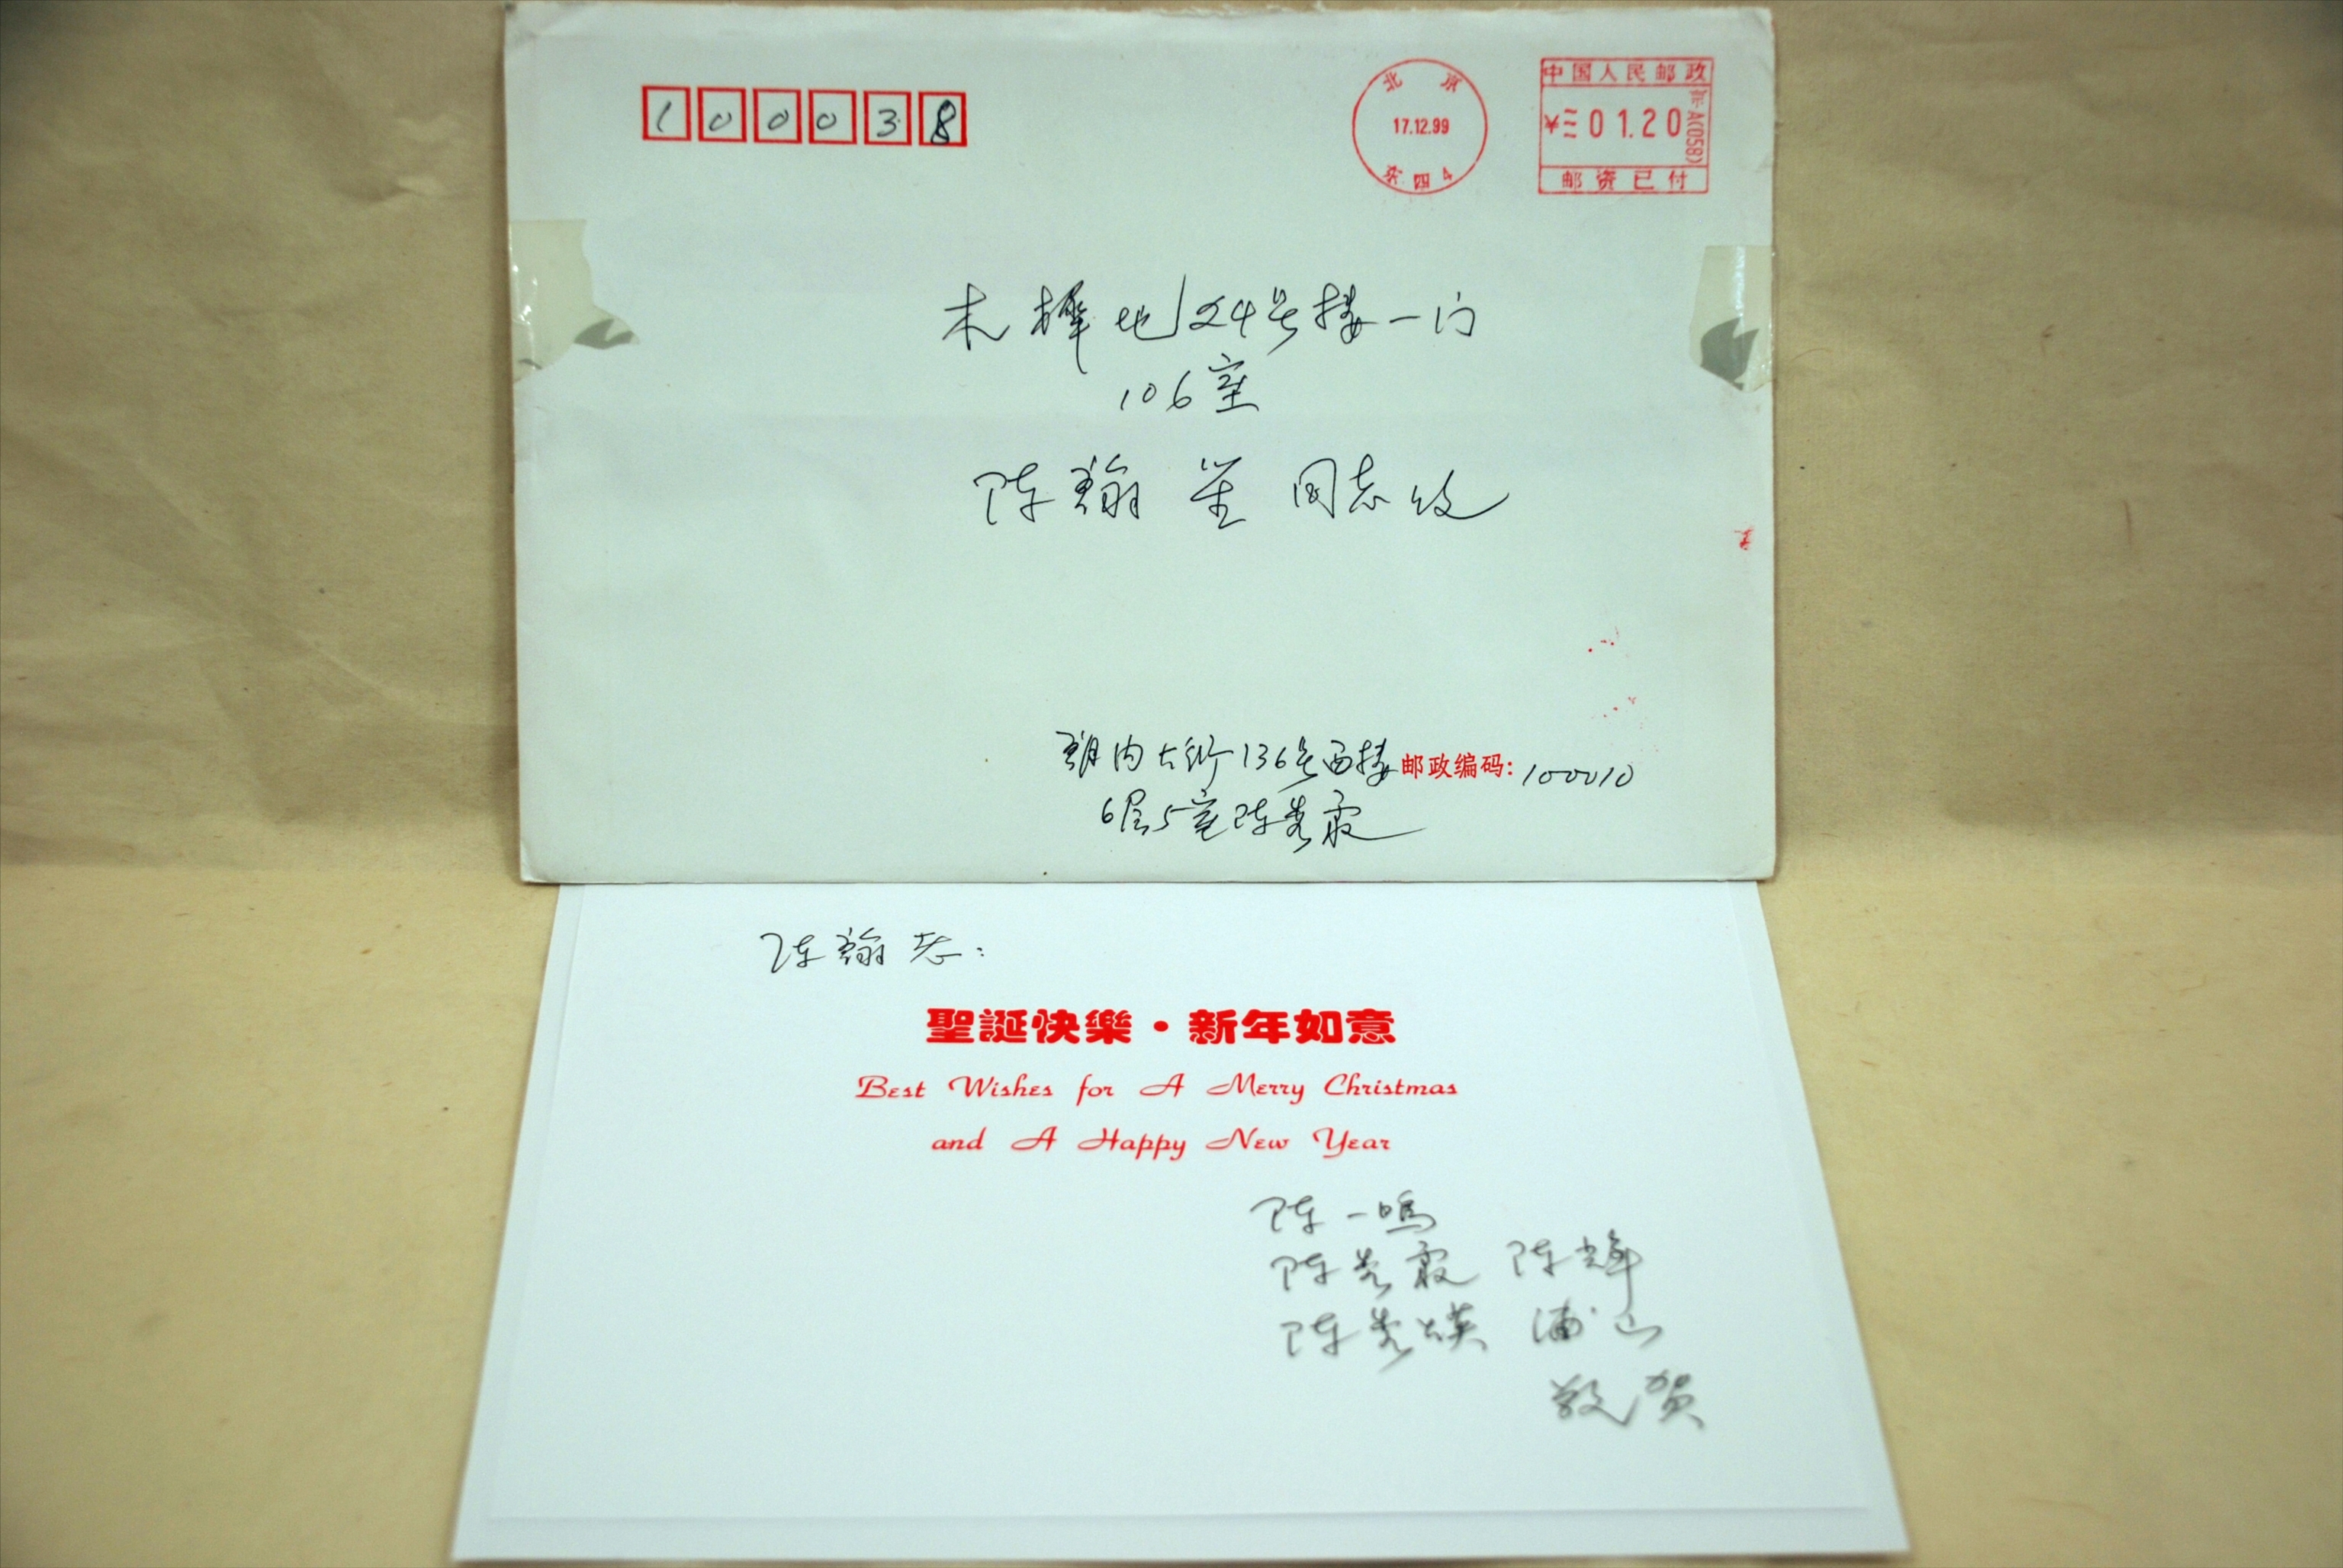 100038
北京
17.12.99
东四4
中国人民邮政
¥三01.20
京A(058)
邮资已付
木樨地24号楼一门
106室
陈翰笙同志收
朝内大街136号西楼邮政编码:100010
6层5室陈秀霞
陈翰老:
聖誕快樂・新年如意
Best Wishes for A Merry Christmas
and A Happy New Year
陈一鸣
陈秀霞 陈辉
陈秀煐 浦山
敬贺